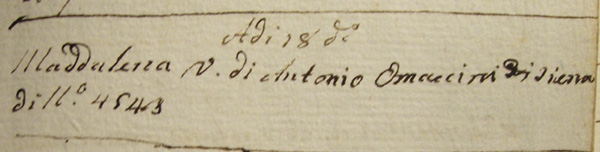 Adi 18 d.º
Maddalena V. di Antonio Omaccini di Siena
di N.º 4543